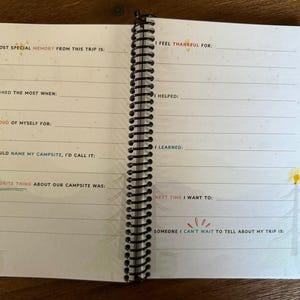 OST SPECIAL MEMORY FROM THIS TRIP IS:
HED THE MOST WHEN:
OUD OF MYSELF FOR:
ULD NAME MY CAMPSITE, I'D CALL IT:
ORITE THING ABOUT OUR CAMPSITE WAS:
I FEEL THANKFUL FOR:
I HELPED:
I LEARNED:
NEXT TIME I WANT TO:
SOMEONE I CAN'T WAIT TO TELL ABOUT MY TRIP IS: